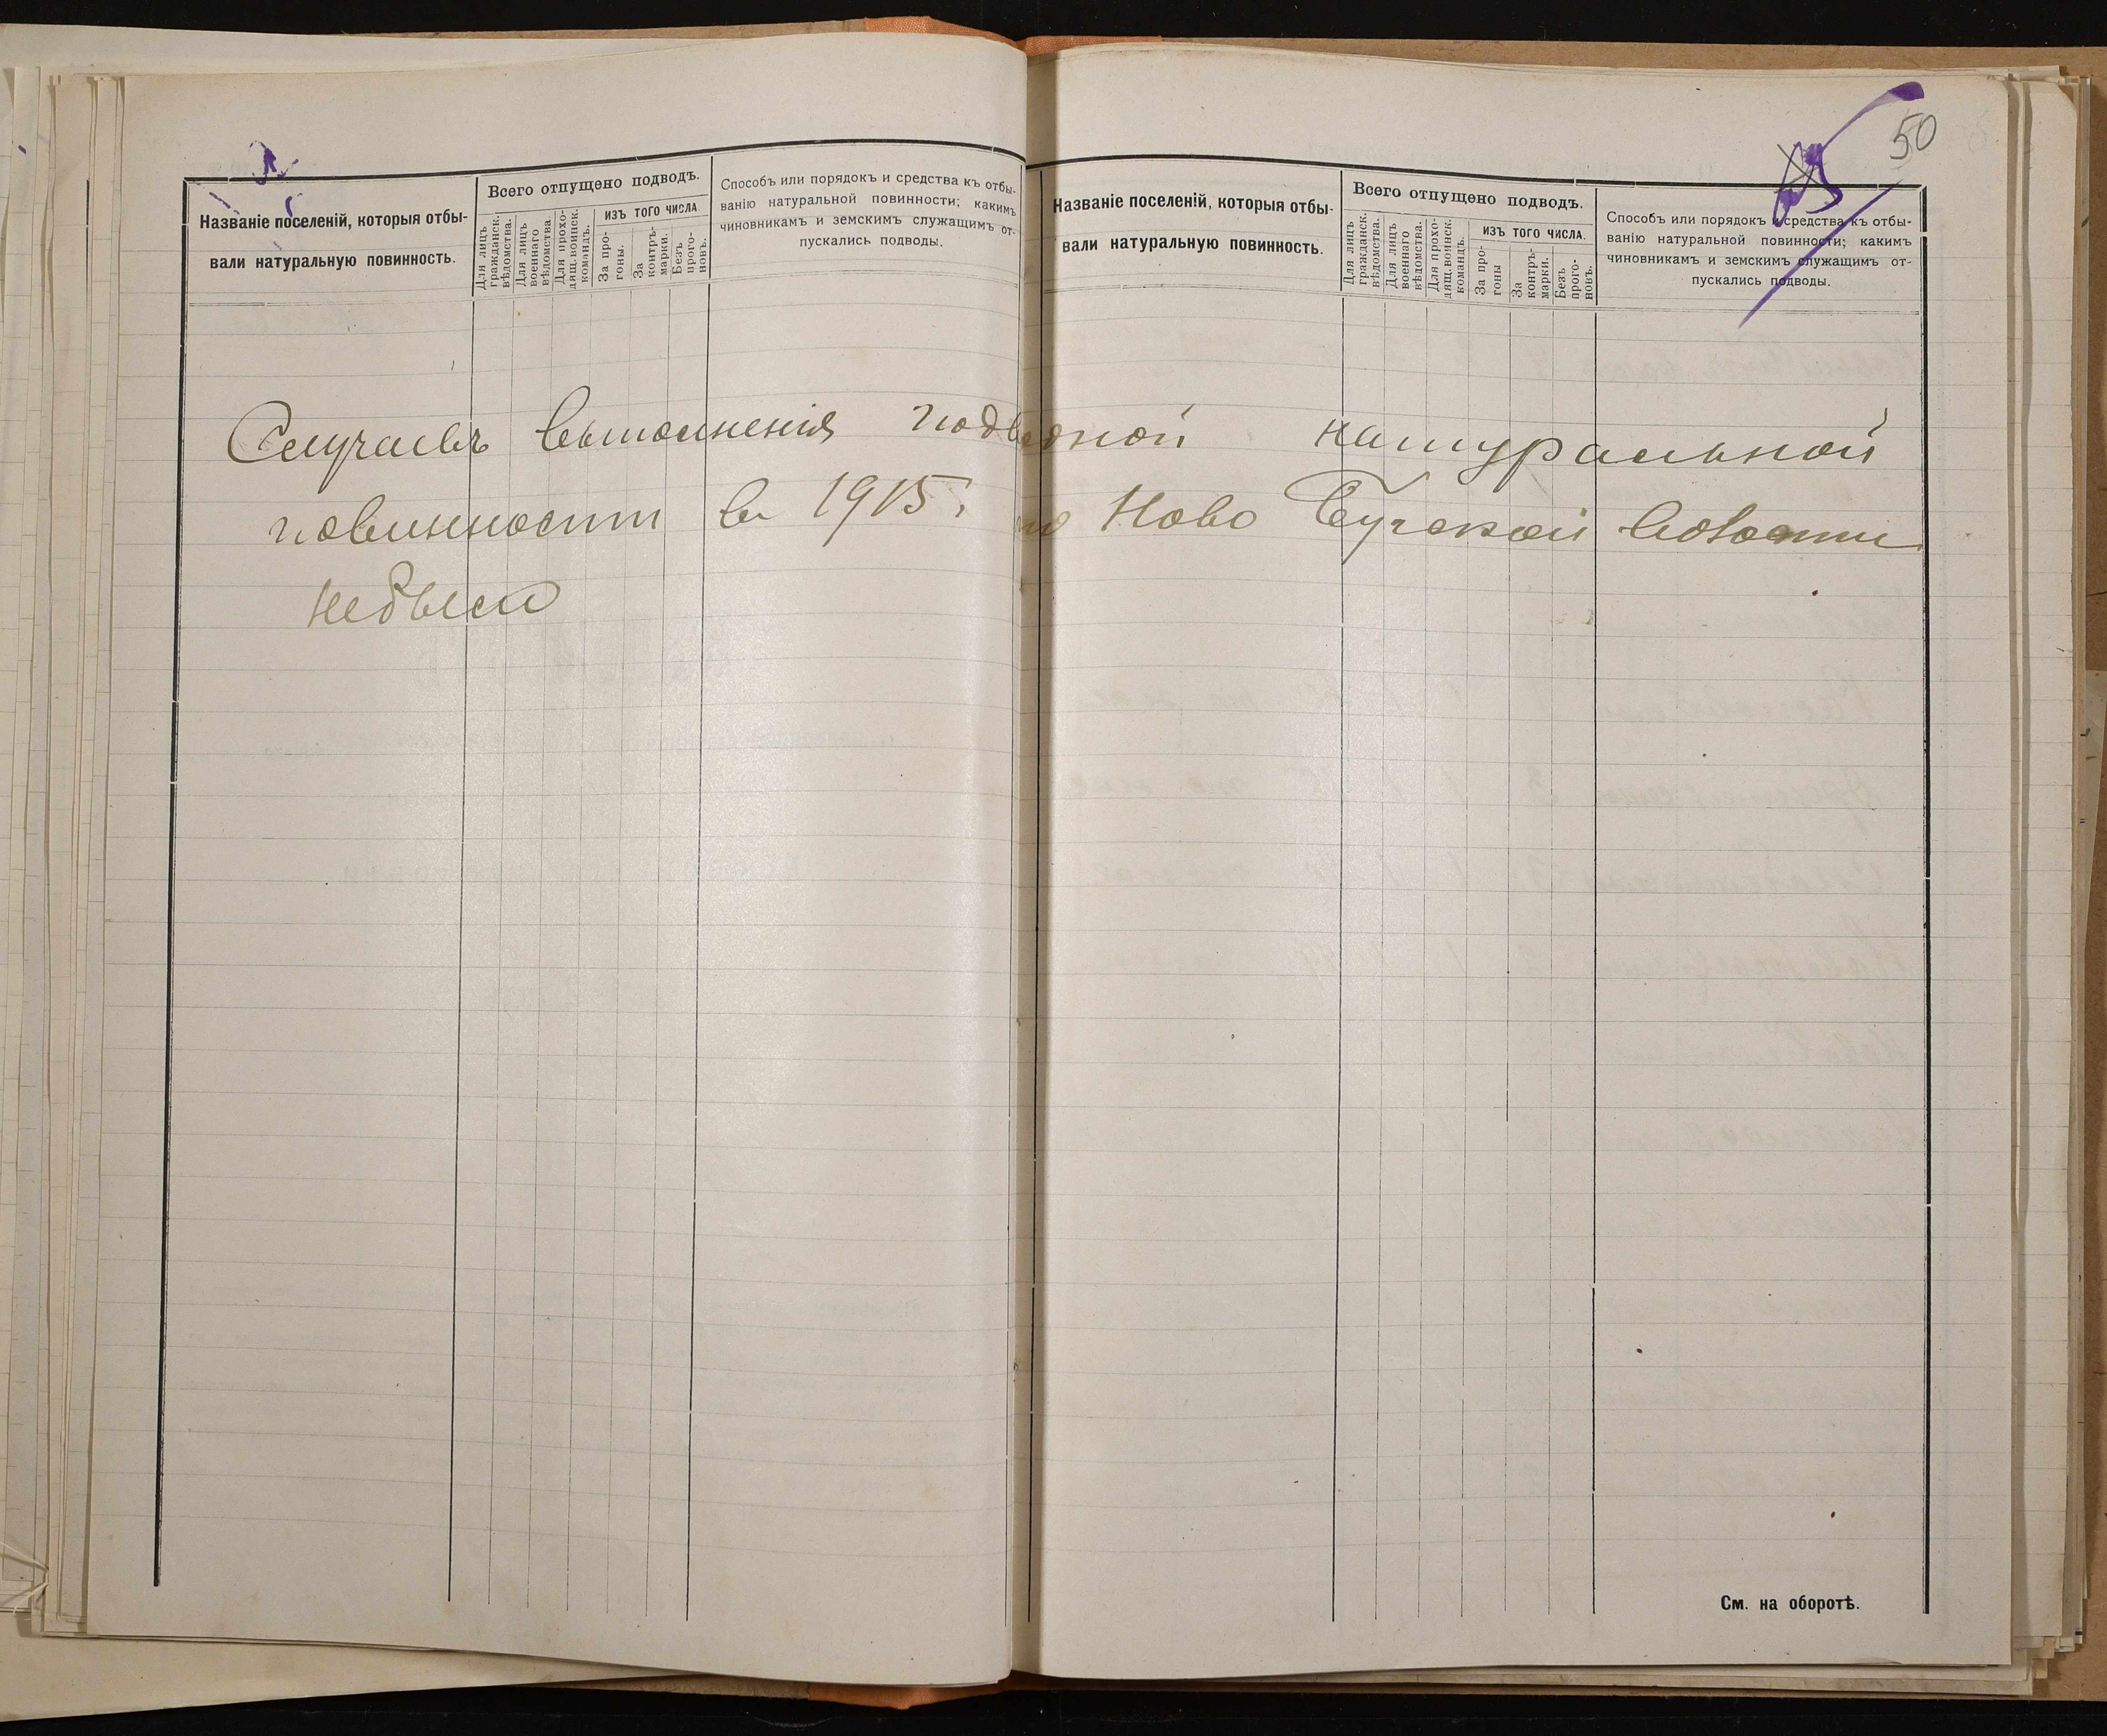 Названіе поселеній, которыя отбы-
вали натуральную повинность.
Всего отпущено подводъ.
Для лицъ
гражданск.
вѣдомства.
Для лицъ
военнаго
вѣдомства
Для прохо-
дящ. воинск.
командъ.
изъ того числа.
За про-
гоны.
За
контръ-
марки.
Безъ
прого-
новъ.
Способъ или порядокъ и средства къ отбы-
ванію натуральной повинности; какимъ
чиновникамъ и земскимъ служащимъ от-
пускались подводы.
50
Названіе поселеній, которыя отбы-
вали натуральную повинность.
Всего отпущено подводъ.
Для лицъ
гражданск.
вѣдомства.
Для лицъ
военнаго
вѣдомства.
Для прохо-
дящ. воинск.
командъ.
изъ того числа.
За про-
гоны
За
контръ-
марки.
Безъ
прого-
новъ.
Способъ или порядокъ и средства къ отбы-
ванію натуральной повинности; какимъ
чиновникамъ и земскимъ служащимъ от-
пускались подводы.
Случаевъ выполненія подводной натуральной
повинности въ 1915 г. по Ново Бугской волости
небыло
См. на оборотѣ.